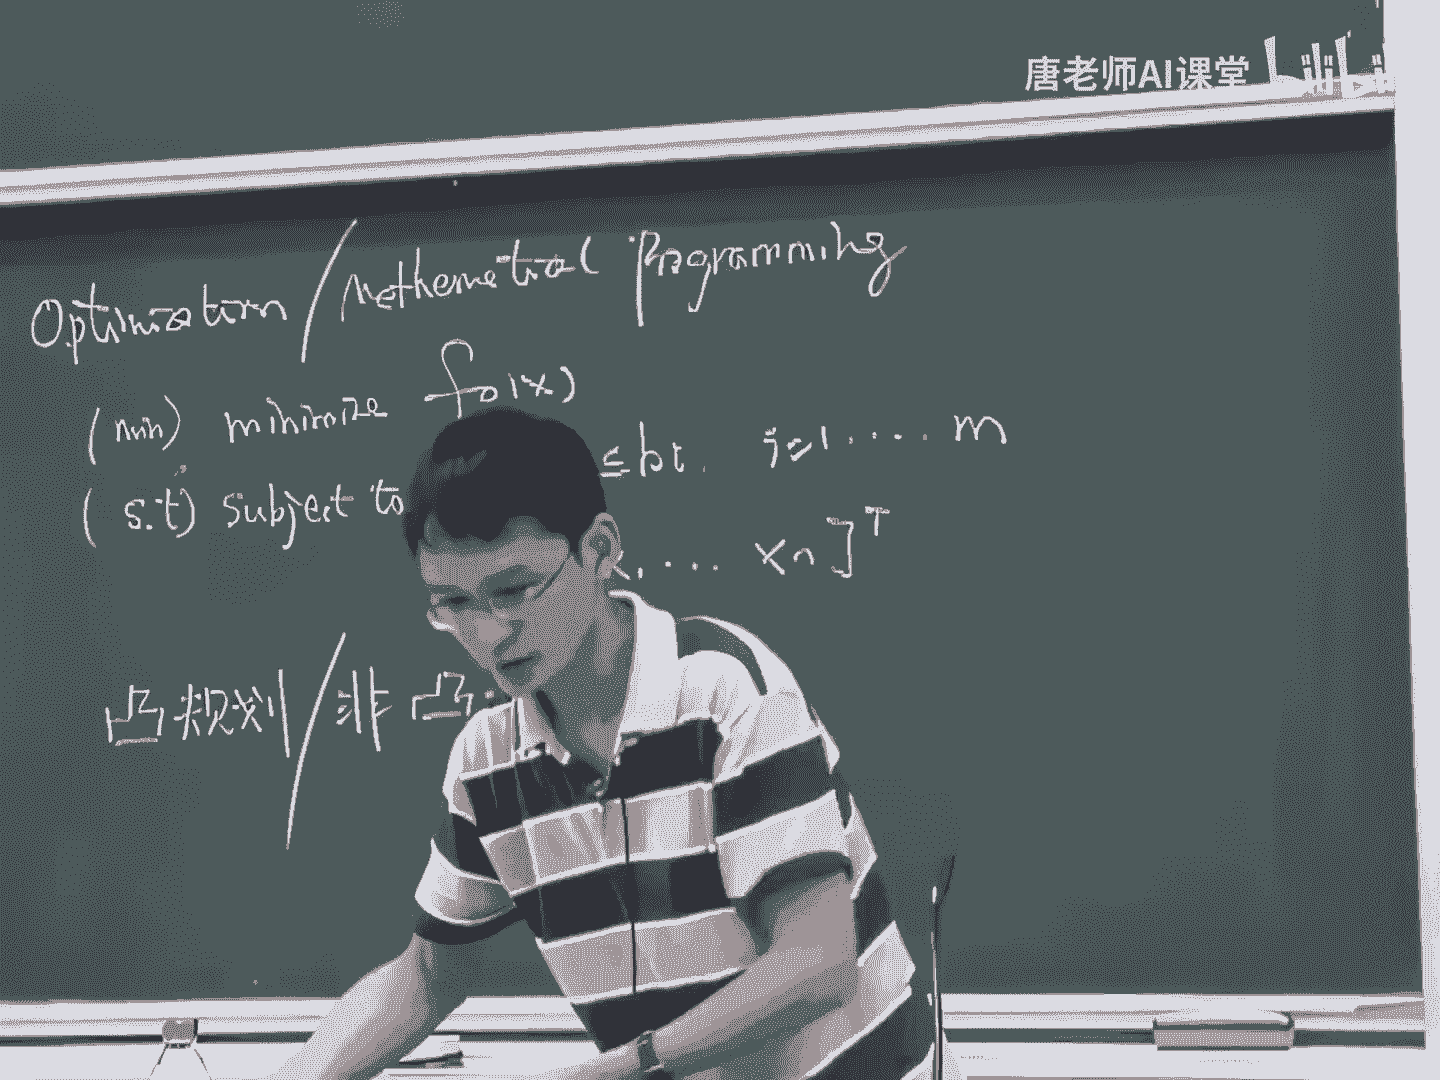 唐老师AI课堂 bilibili
Optimization / Mathematical Programming
(min) minimize f₀(x)
(s.t) subject to ≤ bi. i=1.... m
x1 .... xn]ᵀ
凸规划 / 非凸